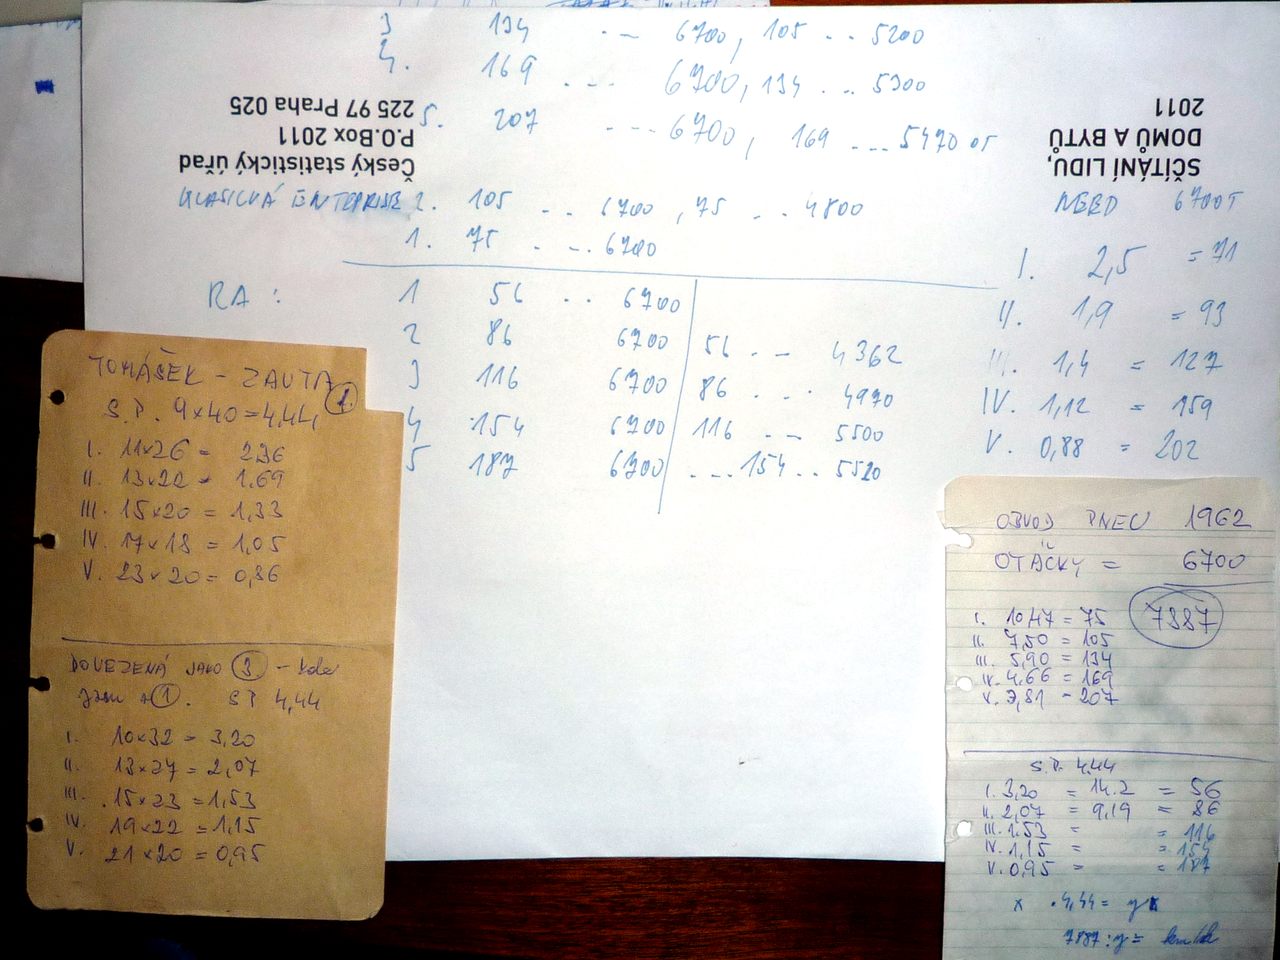 3 134 .. 6700, 105 .. 5200
4. 169 ... 6700, 134 ... 5300
5. 207 ... 6700, 169 ... 5470 OT
Český statistický úřad
P.O.Box 2011
225 97 Praha 025
SČÍTÁNÍ LIDU,
DOMŮ A BYTŮ
2011
2. 105 ... 6700, 75 ... 4800
1. 75 ... 6700
RA:
1 56 .. 6700
2 86 6700 56 ... 4362
3 116 6700 86 ... 4970
4 154 6700 116 ... 5500
5 187 6700 ... 154 .. 5520
NEED 6700T
I. 2,5 = 71
II. 1,9 = 93
III. 1,4 = 127
IV. 1,12 = 159
V. 0,88 = 202
TOMÁŠEK - ZAUTA 1
S.P. 9x40=4,44
I. 11x26 = 2,36
II. 13x22 = 1,69
III. 15x20 = 1,33
IV. 17x18 = 1,05
V. 23x20 = 0,86
DOVEZENÁ JAKO 3 -
1. SP 4,44
I. 10x32 = 3,20
II. 13x27 = 2,07
III. 15x23 = 1,53
IV. 19x22 = 1,15
V. 21x20 = 0,95
OBVOD PNEU 1962
OTÁČKY = 6700
7887
I. 10,47 = 75
II. 7,50 = 105
III. 5,90 = 134
IV. 4,66 = 169
V. 3,81 - 207
S.P. 4.44
I. 3,20 = 14.2 = 56
II. 2,07 = 9,19 = 86
III. 1.53 = = 116
IV. 1,15 = = 154
V. 0,95 = = 187
x . 4,44 = y
7887 : y =